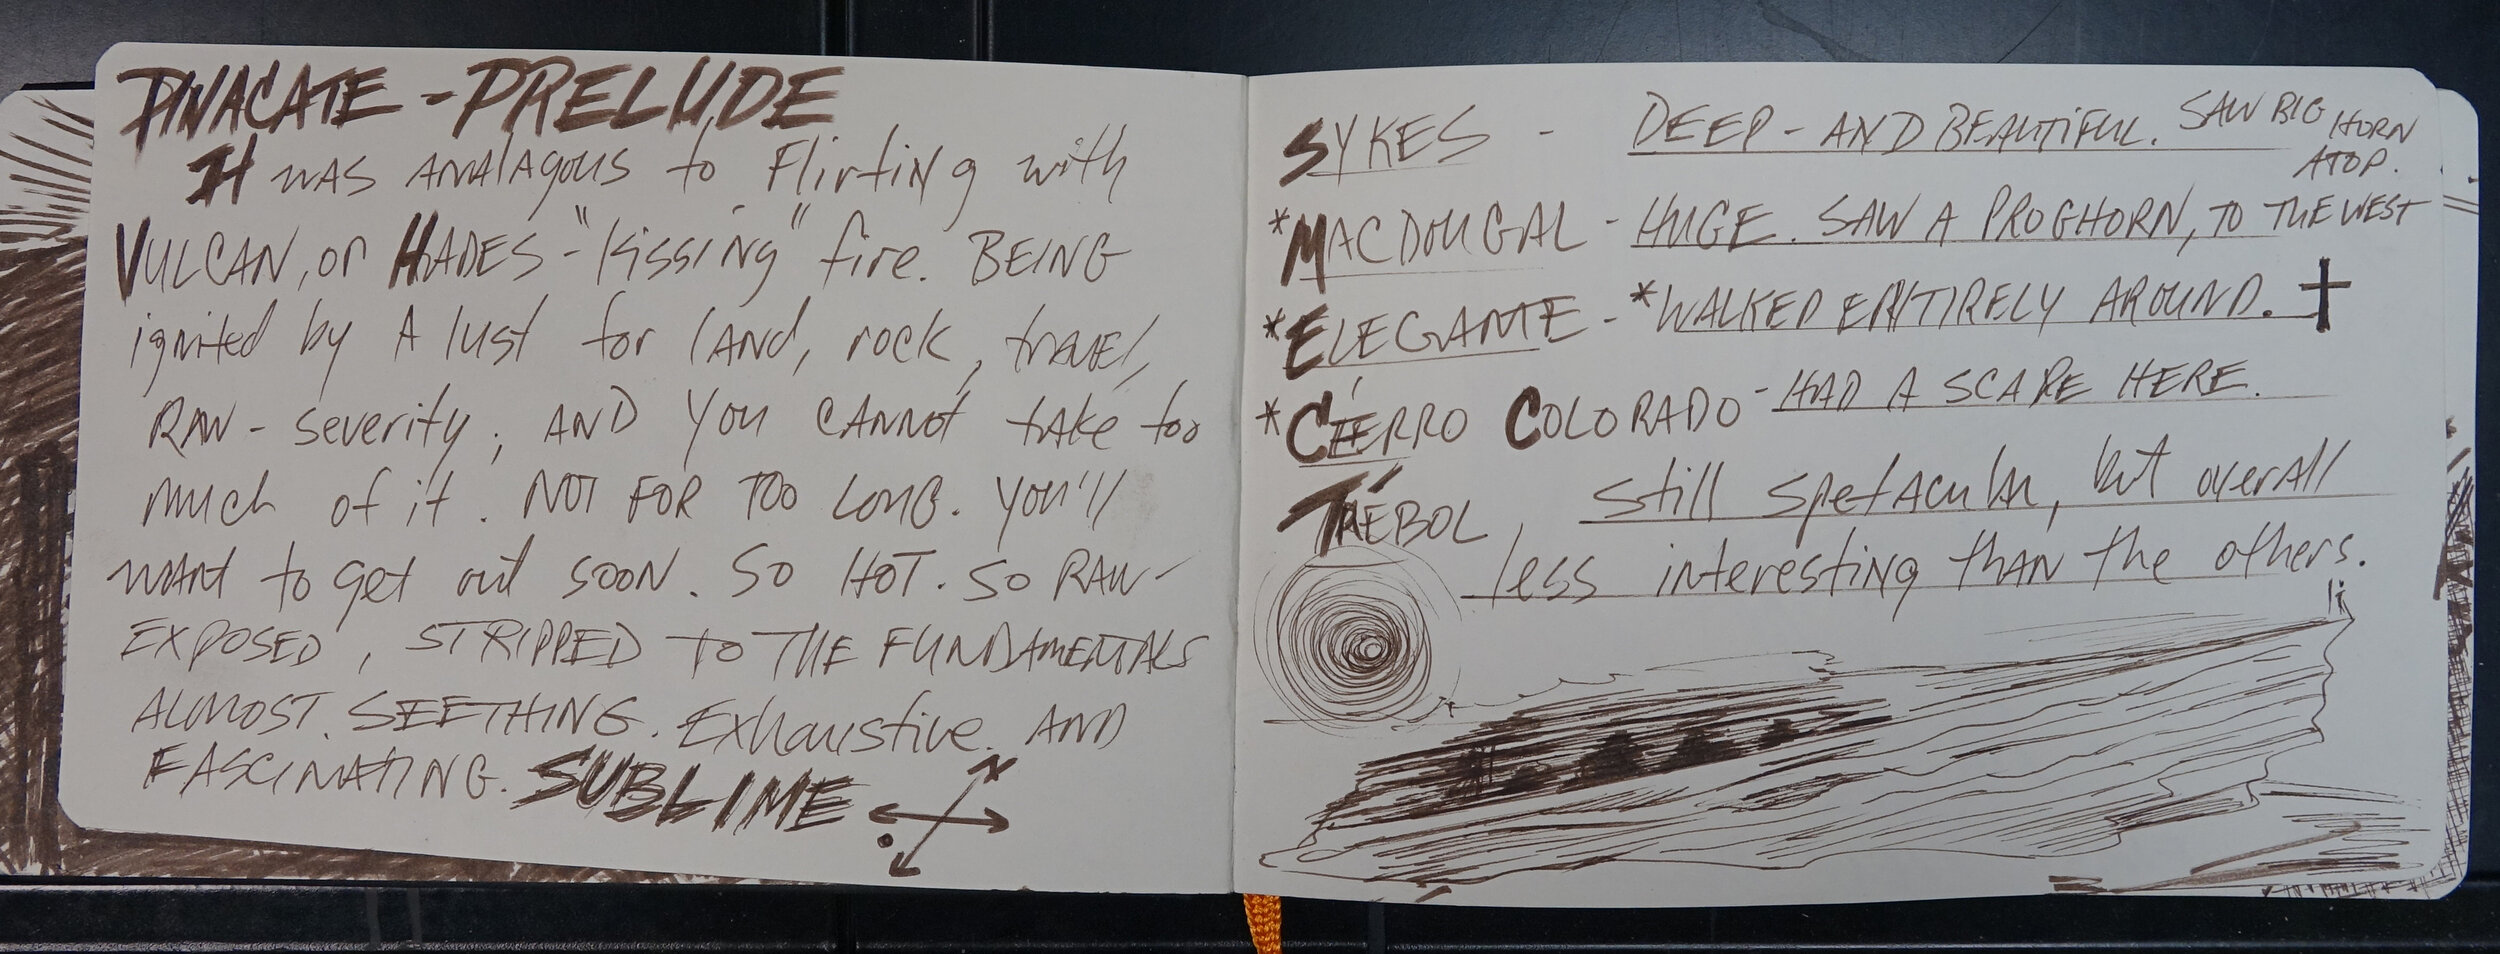 PINACATE - PRELUDE
It was analagous to Flirting with
VULCAN, or HADES - "Kissing" fire. BEING
ignited by A lust for land, rock, travel,
RAW - severity, AND YOU CANNOT take too
much of it. NOT FOR TOO LONG. YOU'll
WANT to get out SOON. SO HOT. SO RAW -
EXPOSED, STRIPPED TO THE FUNDAMENTALS
ALMOST SEETHING. Exhaustive. AND
FASCINATING. SUBLIME
SYKES - DEEP - AND BEAUTIFUL. SAW BIG HORN
ATOP.
*MACDOUGAL - HUGE. SAW A PROGHORN, TO THE WEST
*ELEGANTE - *WALKED ENTIRELY AROUND.
*CERRO COLORADO - HAD A SCARE HERE.
still spetacular, but overall
less interesting than the others.